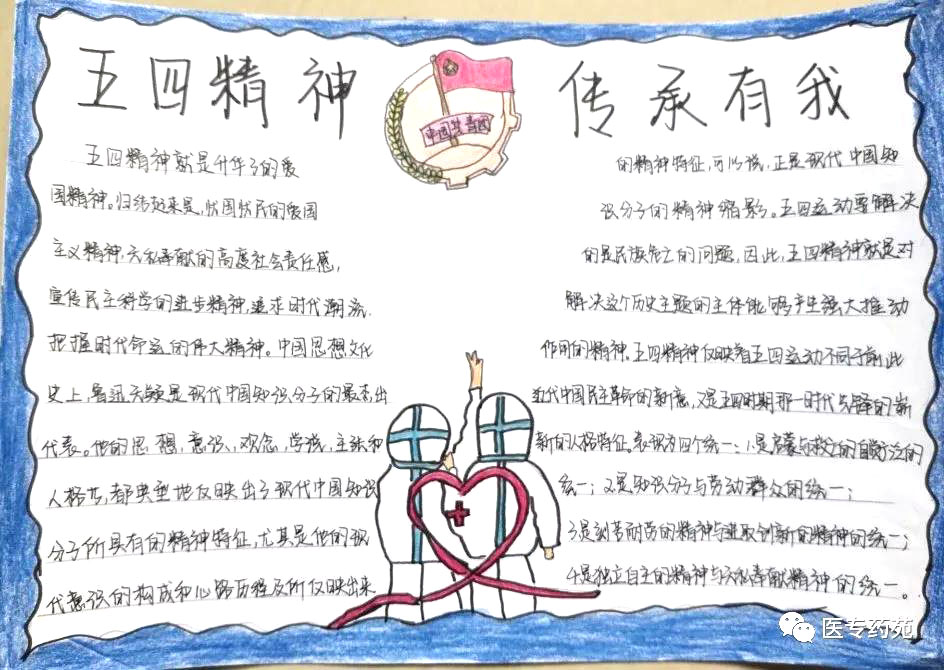 五四精神 传承有我
中国共青团
五四精神就是升华了的爱
国精神。归结起来是,忧国忧民的爱国
主义精神,无私奉献的高度社会责任感,
宣传民主科学的进步精神,追求时代潮流,
把握时代命运的伟大精神。中国思想文化
史上,鲁迅无疑是现代中国知识分子的最杰出
代表。他的思想,意识,观念,学识,主张和
人格等,都典型地反映出了现代中国知识
分子所具有的精神特征,尤其是他的现
代意识的构成和心路历程及所反映出来
的精神特征,可以说,正是现代中国知
识分子的精神缩影。五四运动要解决
的是民族危亡的问题,因此,五四精神就是对
解决这个历史主题的主体能够产生强大推动
作用的精神。五四精神反映着五四运动不同于前此
近代中国民主革命的新意,又是五四时期那一时代先锋的崭
新的人格特征。表现为四个统一:1.是启蒙与救亡的自觉的
统一;2.是知识分子与劳动群众的统一;
3是刻苦耐劳的精神与进取创新的精神的统一;
4是独立自主的精神与无私奉献精神的统一。
医专药苑